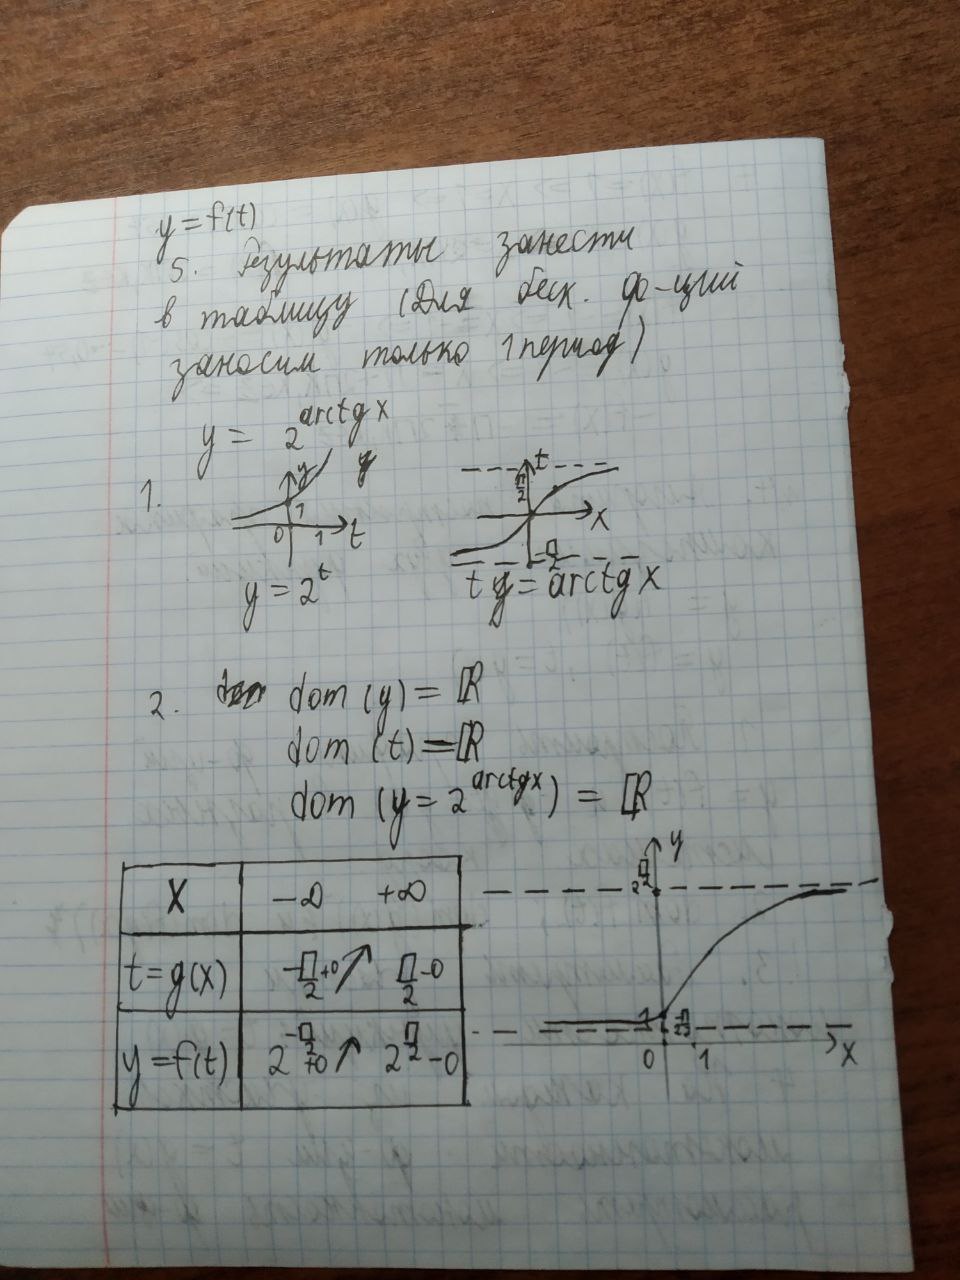 y = f(t)
5. Результаты занести
в таблицу (Для беск. ф-ций
заносим только 1 период)
y = 2^arctg x
1.
y
1
0 1 t
y = 2^t
t
π/2
x
-π/2
t y = arctg x
2. dom (y) = ℝ
dom (t) = ℝ
dom (y = 2^arctgx) = ℝ
x -∞ +∞
t = g(x) -π/2+0 ↗ π/2-0
y = f(t) 2^-π/2+0 ↗ 2^π/2-0
y
2^π/2
1
0 1 x